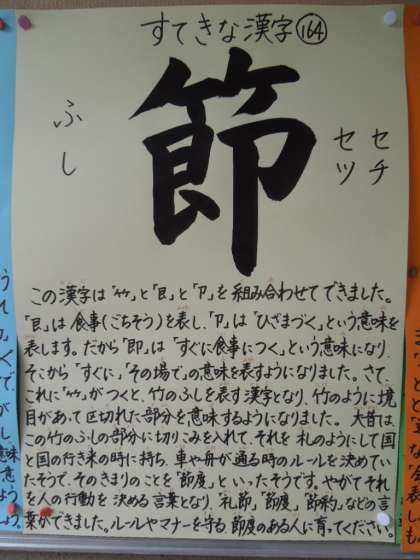 すてきな漢字 164
節
ふし
セチ
セツ
この漢字は「⺮」と「㠯」と「卩」を組み合わせてできました。
「㠯」は食事(ごちそう)を表し、「卩」は「ひざまづく」という意味を
表します。だから「即」は「すぐに食事につく」という意味になり、
そこから「すぐに」、「その場で」の意味を表すようになりました。さて、
これに「⺮」がつくと、竹のふしを表す漢字となり、竹のように境
目があって区切れた部分を意味するようになりました。大昔は、
この竹のふしの部分に切りこみを入れて、それを札のようにして国
と国の行き来の時に持ち、車や舟が通る時のルールを決めてい
たそうで、そのきまりのことを「節度」といったそうです。やがてそれ
を人の行動を決める言葉となり、「礼節」、「節度」、「節約」などの言
葉ができました。ルールやマナーを守る、節度のある人に育ってください。